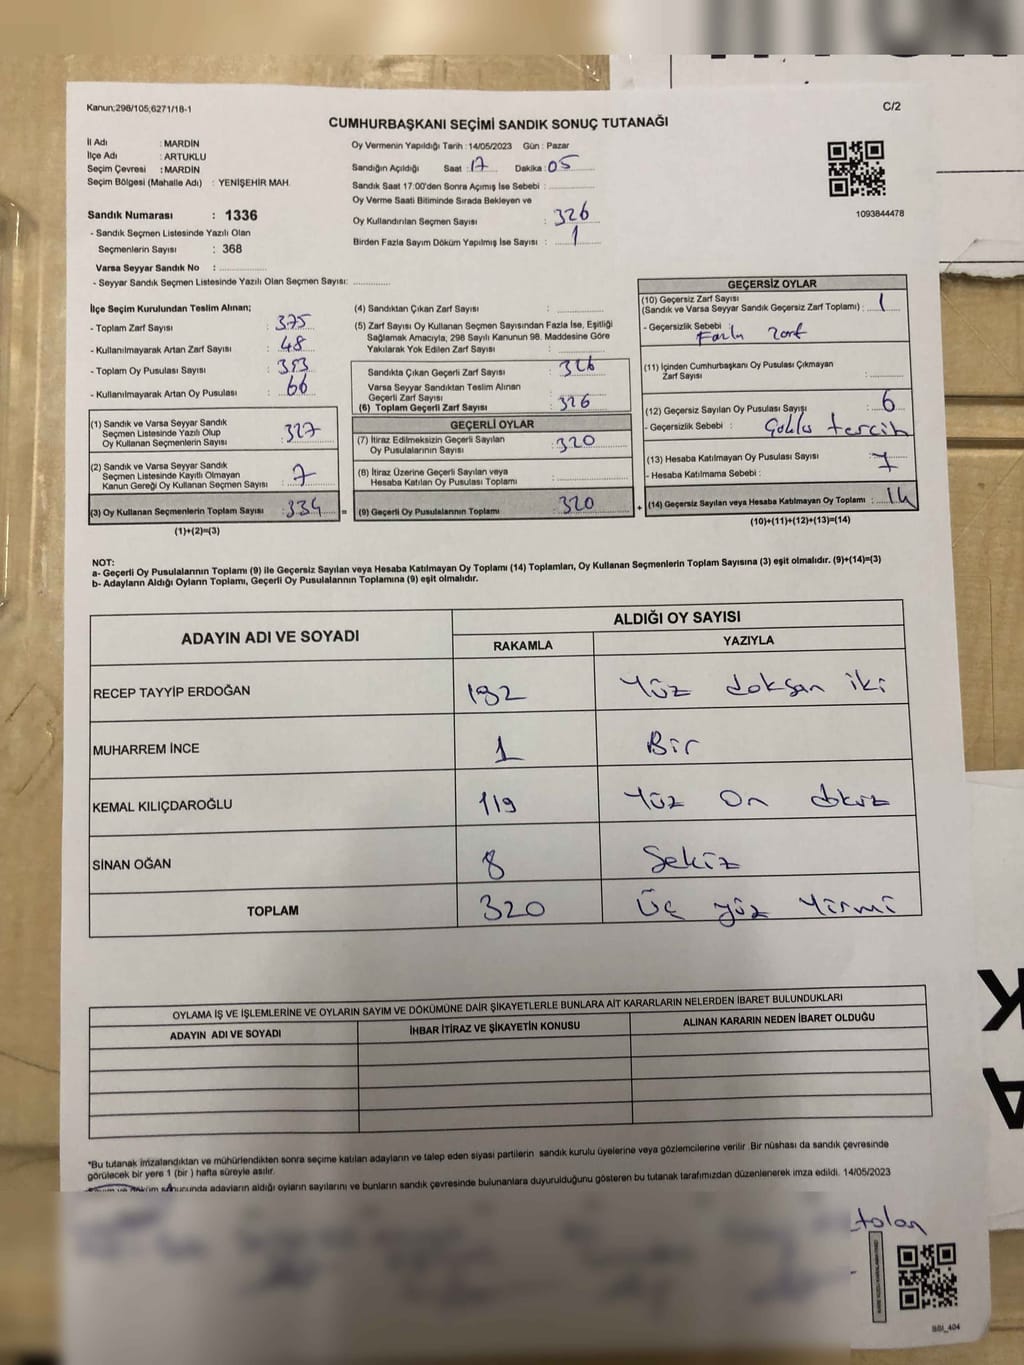 Kanun;298/105;6271/18-1
C/2
CUMHURBAŞKANI SEÇİMİ SANDIK SONUÇ TUTANAĞI
İl Adı : MARDİN
İlçe Adı : ARTUKLU
Seçim Çevresi : MARDİN
Seçim Bölgesi (Mahalle Adı) : YENİŞEHİR MAH.
Sandık Numarası : 1336
- Sandık Seçmen Listesinde Yazılı Olan
Seçmenlerin Sayısı : 368
Varsa Seyyar Sandık No :
- Seyyar Sandık Seçmen Listesinde Yazılı Olan Seçmen Sayısı:
Oy Vermenin Yapıldığı Tarih : 14/05/2023 Gün : Pazar
Sandığın Açıldığı Saat : 17 Dakika : 05
Sandık Saat 17:00'den Sonra Açımış İse Sebebi :
Oy Verme Saati Bitiminde Sırada Bekleyen ve
Oy Kullandırılan Seçmen Sayısı : 326
Birden Fazla Sayım Döküm Yapılmış İse Sayısı : 1
1093844478
İlçe Seçim Kurulundan Teslim Alınan;
- Toplam Zarf Sayısı : 375
- Kullanılmayarak Artan Zarf Sayısı : 48
- Toplam Oy Pusulası Sayısı : 353
- Kullanılmayarak Artan Oy Pusulası : 66
(1) Sandık ve Varsa Seyyar Sandık
Seçmen Listesinde Yazılı Olup
Oy Kullanan Seçmenlerin Sayısı : 327
(2) Sandık ve Varsa Seyyar Sandık
Seçmen Listesinde Kayıtlı Olmayan
Kanun Gereği Oy Kullanan Seçmen Sayısı : 7
(3) Oy Kullanan Seçmenlerin Toplam Sayısı : 334
(1)+(2)=(3)
(4) Sandıktan Çıkan Zarf Sayısı :
(5) Zarf Sayısı Oy Kullanan Seçmen Sayısından Fazla İse, Eşitliği
Sağlamak Amacıyla, 298 Sayılı Kanunun 98. Maddesine Göre
Yakılarak Yok Edilen Zarf Sayısı :
Sandıkta Çıkan Geçerli Zarf Sayısı : 326
Varsa Seyyar Sandıktan Teslim Alınan
Geçerli Zarf Sayısı :
(6) Toplam Geçerli Zarf Sayısı : 326
GEÇERLİ OYLAR
(7) İtiraz Edilmeksizin Geçerli Sayılan
Oy Pusulalarının Sayısı : 320
(8) İtiraz Üzerine Geçerli Sayılan veya
Hesaba Katılan Oy Pusulası Toplamı :
= (9) Geçerli Oy Pusulalarının Toplamı : 320
GEÇERSİZ OYLAR
(10) Geçersiz Zarf Sayısı
(Sandık ve Varsa Seyyar Sandık Geçersiz Zarf Toplamı) : 1
- Geçersizlik Sebebi :
Fazla zarf
(11) İçinden Cumhurbaşkanı Oy Pusulası Çıkmayan
Zarf Sayısı :
(12) Geçersiz Sayılan Oy Pusulası Sayısı : 6
- Geçersizlik Sebebi : Çoklu tercih
(13) Hesaba Katılmayan Oy Pusulası Sayısı : 7
- Hesaba Katılmama Sebebi :
+ (14) Geçersiz Sayılan veya Hesaba Katılmayan Oy Toplamı : 14
(10)+(11)+(12)+(13)=(14)
NOT:
a- Geçerli Oy Pusulalarının Toplamı (9) ile Geçersiz Sayılan veya Hesaba Katılmayan Oy Toplamı (14) Toplamları, Oy Kullanan Seçmenlerin Toplam Sayısına (3) eşit olmalıdır. (9)+(14)=(3)
b- Adayların Aldığı Oyların Toplamı, Geçerli Oy Pusulalarının Toplamına (9) eşit olmalıdır.
ADAYIN ADI VE SOYADI
ALDIĞI OY SAYISI
RAKAMLA YAZIYLA
RECEP TAYYİP ERDOĞAN 192 Yüz doksan iki
MUHARREM İNCE 1 Bir
KEMAL KILIÇDAROĞLU 119 Yüz On dokuz
SİNAN OĞAN 8 Sekiz
TOPLAM 320 Üç yüz Yirmi
OYLAMA İŞ VE İŞLEMLERİNE VE OYLARIN SAYIM VE DÖKÜMÜNE DAİR ŞİKAYETLERLE BUNLARA AİT KARARLARIN NELERDEN İBARET BULUNDUKLARI
ADAYIN ADI VE SOYADI İHBAR İTİRAZ VE ŞİKAYETİN KONUSU ALINAN KARARIN NEDEN İBARET OLDUĞU
*Bu tutanak imzalandıktan ve mühürlendikten sonra seçime katılan adayların ve talep eden siyasi partilerin sandık kurulu üyelerine veya gözlemcilerine verilir. Bir nüshası da sandık çevresinde
görülecek bir yere 1 (bir ) hafta süreyle asılır.
Sayım ve döküm sonucunda adayların aldığı oyların sayılarını ve bunların sandık çevresinde bulunanlara duyurulduğunu gösteren bu tutanak tarafımızdan düzenlenerek imza edildi. 14/05/2023
tolan
BBI_404